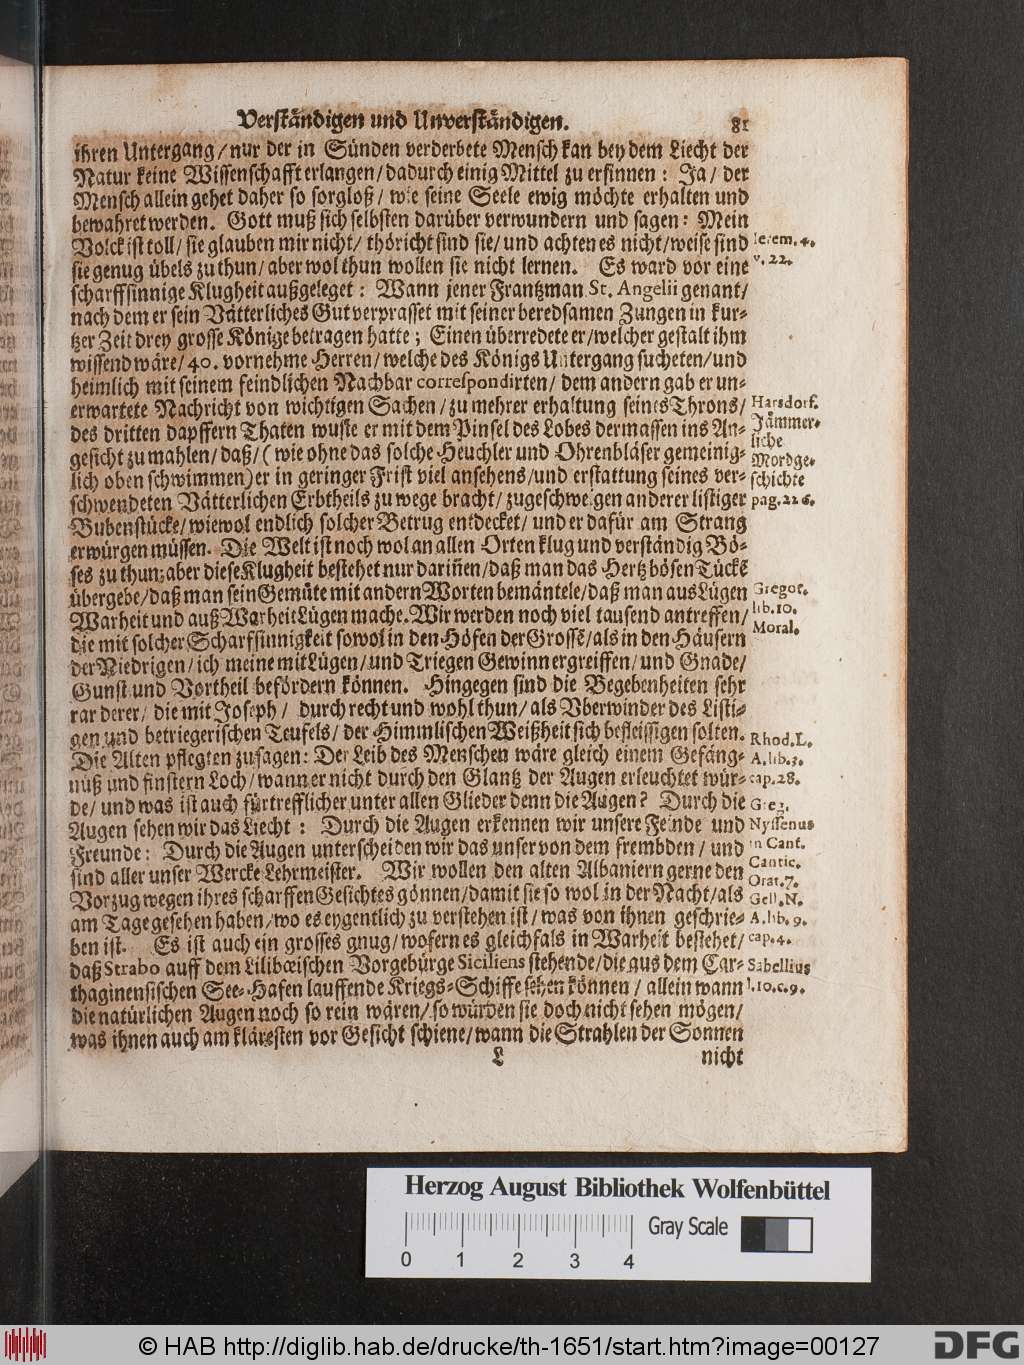 Verständigen und Unverständigen. 81
ihren Untergang/ nur der in Sünden verderbete Mensch kan bey dem Liecht der
Natur keine Wissenschafft erlangen/ dadurch einig Mittel zu ersinnen: Ja/ der
Mensch allein gehet daher so sorgloß/ wie seine Seele ewig möchte erhalten und
bewahret werden. Gott muß sich selbsten darüber verwundern und sagen: Mein
Volck ist toll/ sie glauben mir nicht/ thöricht sind sie/ und achten es nicht/ weise sind
Jerem. 4.
sie genug übels zu thun/ aber wol thun wollen sie nicht lernen. Es ward vor eine
v. 22.
scharffsinnige Klugheit außgeleget: Wann jener Frantzman St. Angelii genant/
nach dem er sein Vätterliches Gut verprasset mit seiner beredsamen Zungen in kur-
tzer Zeit drey grosse Könige betragen hatte; Einen überredete er/ welcher gestalt ihm
wissend wäre/ 40. vornehme Herren/ welche des Königs Untergang sucheten/ und
heimlich mit seinem feindlichen Nachbar correspondirten/ dem andern gab er un-
erwartete Nachricht von wichtigen Sachen/ zu mehrer erhaltung seines Throns/
Harsdorf.
des dritten dapffern Thaten wuste er mit dem Pinsel des Lobes dermassen ins An-
Jämmer-
gesicht zu mahlen/ daß/ (wie ohne das solche Heuchler und Ohrenbläser gemeinig-
liche
Mordge-
lich oben schwimmen) er in geringer Frist viel ansehens/ und erstattung seines ver-
schichte
schwendeten Vätterlichen Erbtheils zu wege bracht/ zugeschweigen anderer listiger
pag. 226.
Bubenstücke/ wiewol endlich solcher Betrug entdecket/ und er dafür am Strang
erwürgen müssen. Die Welt ist noch wol an allen Orten klug und verständig Bö-
ses zu thun; aber diese Klugheit bestehet nur dariñen/ daß man das Hertz bösen Tückē
übergebe/ daß man sein Gemüte mit andern Worten bemäntele/ daß man aus Lügen
Gregor.
Warheit und auß Warheit Lügen mache. Wir werden noch viel tausend antreffen/
lib. 10.
Moral.
die mit solcher Scharfsinnigkeit sowol in den Höfen der Grossē/ als in den Häusern
der Niedrigen/ ich meine mit Lügen/ und Triegen Gewinn ergreiffen/ und Gnade/
Gunst und Vortheil befördern können. Hingegen sind die Begebenheiten sehr
rar derer/ die mit Joseph/ durch recht und wohl thun/ als Vberwinder des Listi-
gen und betriegerischen Teufels/ der Himmlischen Weißheit sich befleissigen solten.
Rhod. L.
Die Alten pflegten zusagen: Der Leib des Menschen wäre gleich einem Gefäng-
A. lib. 3.
nüß und finstern Loch/ wann er nicht durch den Glantz der Augen erleuchtet wür-
cap. 28.
de/ und was ist auch fürtrefflicher unter allen Glieder denn die Augen? Durch die
Greg.
Augen sehen wir das Liecht: Durch die Augen erkennen wir unsere Feinde und
Nyssenus
Freunde: Durch die Augen unterscheiden wir das unser von dem frembden/ und
in Cant.
sind aller unser Wercke Lehrmeister. Wir wollen den alten Albaniern gerne den
Cantic.
Orat. 7.
Vorzug wegen ihres scharffen Gesichtes gönnen/ damit sie so wol in der Nacht/ als
Gell. N.
am Tage gesehen haben/ wo es eygentlich zu verstehen ist/ was von ihnen geschrie-
A. lib. 9.
ben ist. Es ist auch ein grosses gnug/ wofern es gleichfals in Warheit bestehet/
cap. 4.
daß Strabo auff dem Lilibœischen Vorgebürge Siciliens stehende/ die aus dem Car-
Sabellius
thaginensischen See-Hafen lauffende Kriegs-Schiffe sehen können/ allein wann
l. 10. c. 9.
die natürlichen Augen noch so rein wären/ so würden sie doch nicht sehen mögen/
was ihnen auch am kläresten vor Gesicht schiene/ wann die Strahlen der Sonnen
L nicht
Herzog August Bibliothek Wolfenbüttel
Gray Scale
0 1 2 3 4
© HAB http://diglib.hab.de/drucke/th-1651/start.htm?image=00127
DFG